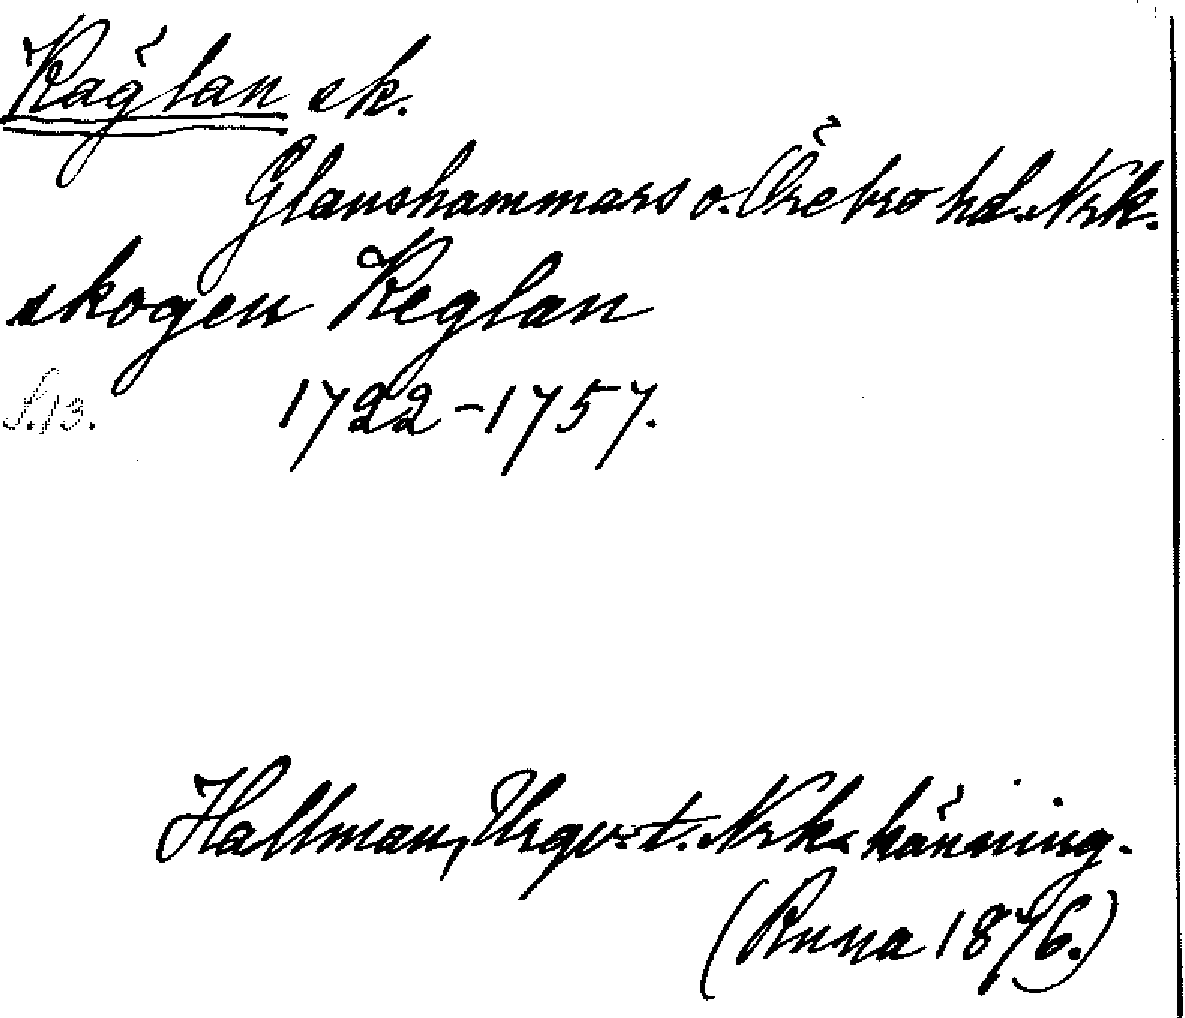 Käglan sk.
Glanshammars o. Örebro hd. Nrk.
skogen Keglan
S. 13. 1722-1757.
Hallman, Urqv. t. Nrks känning.
(Runa 1876.)